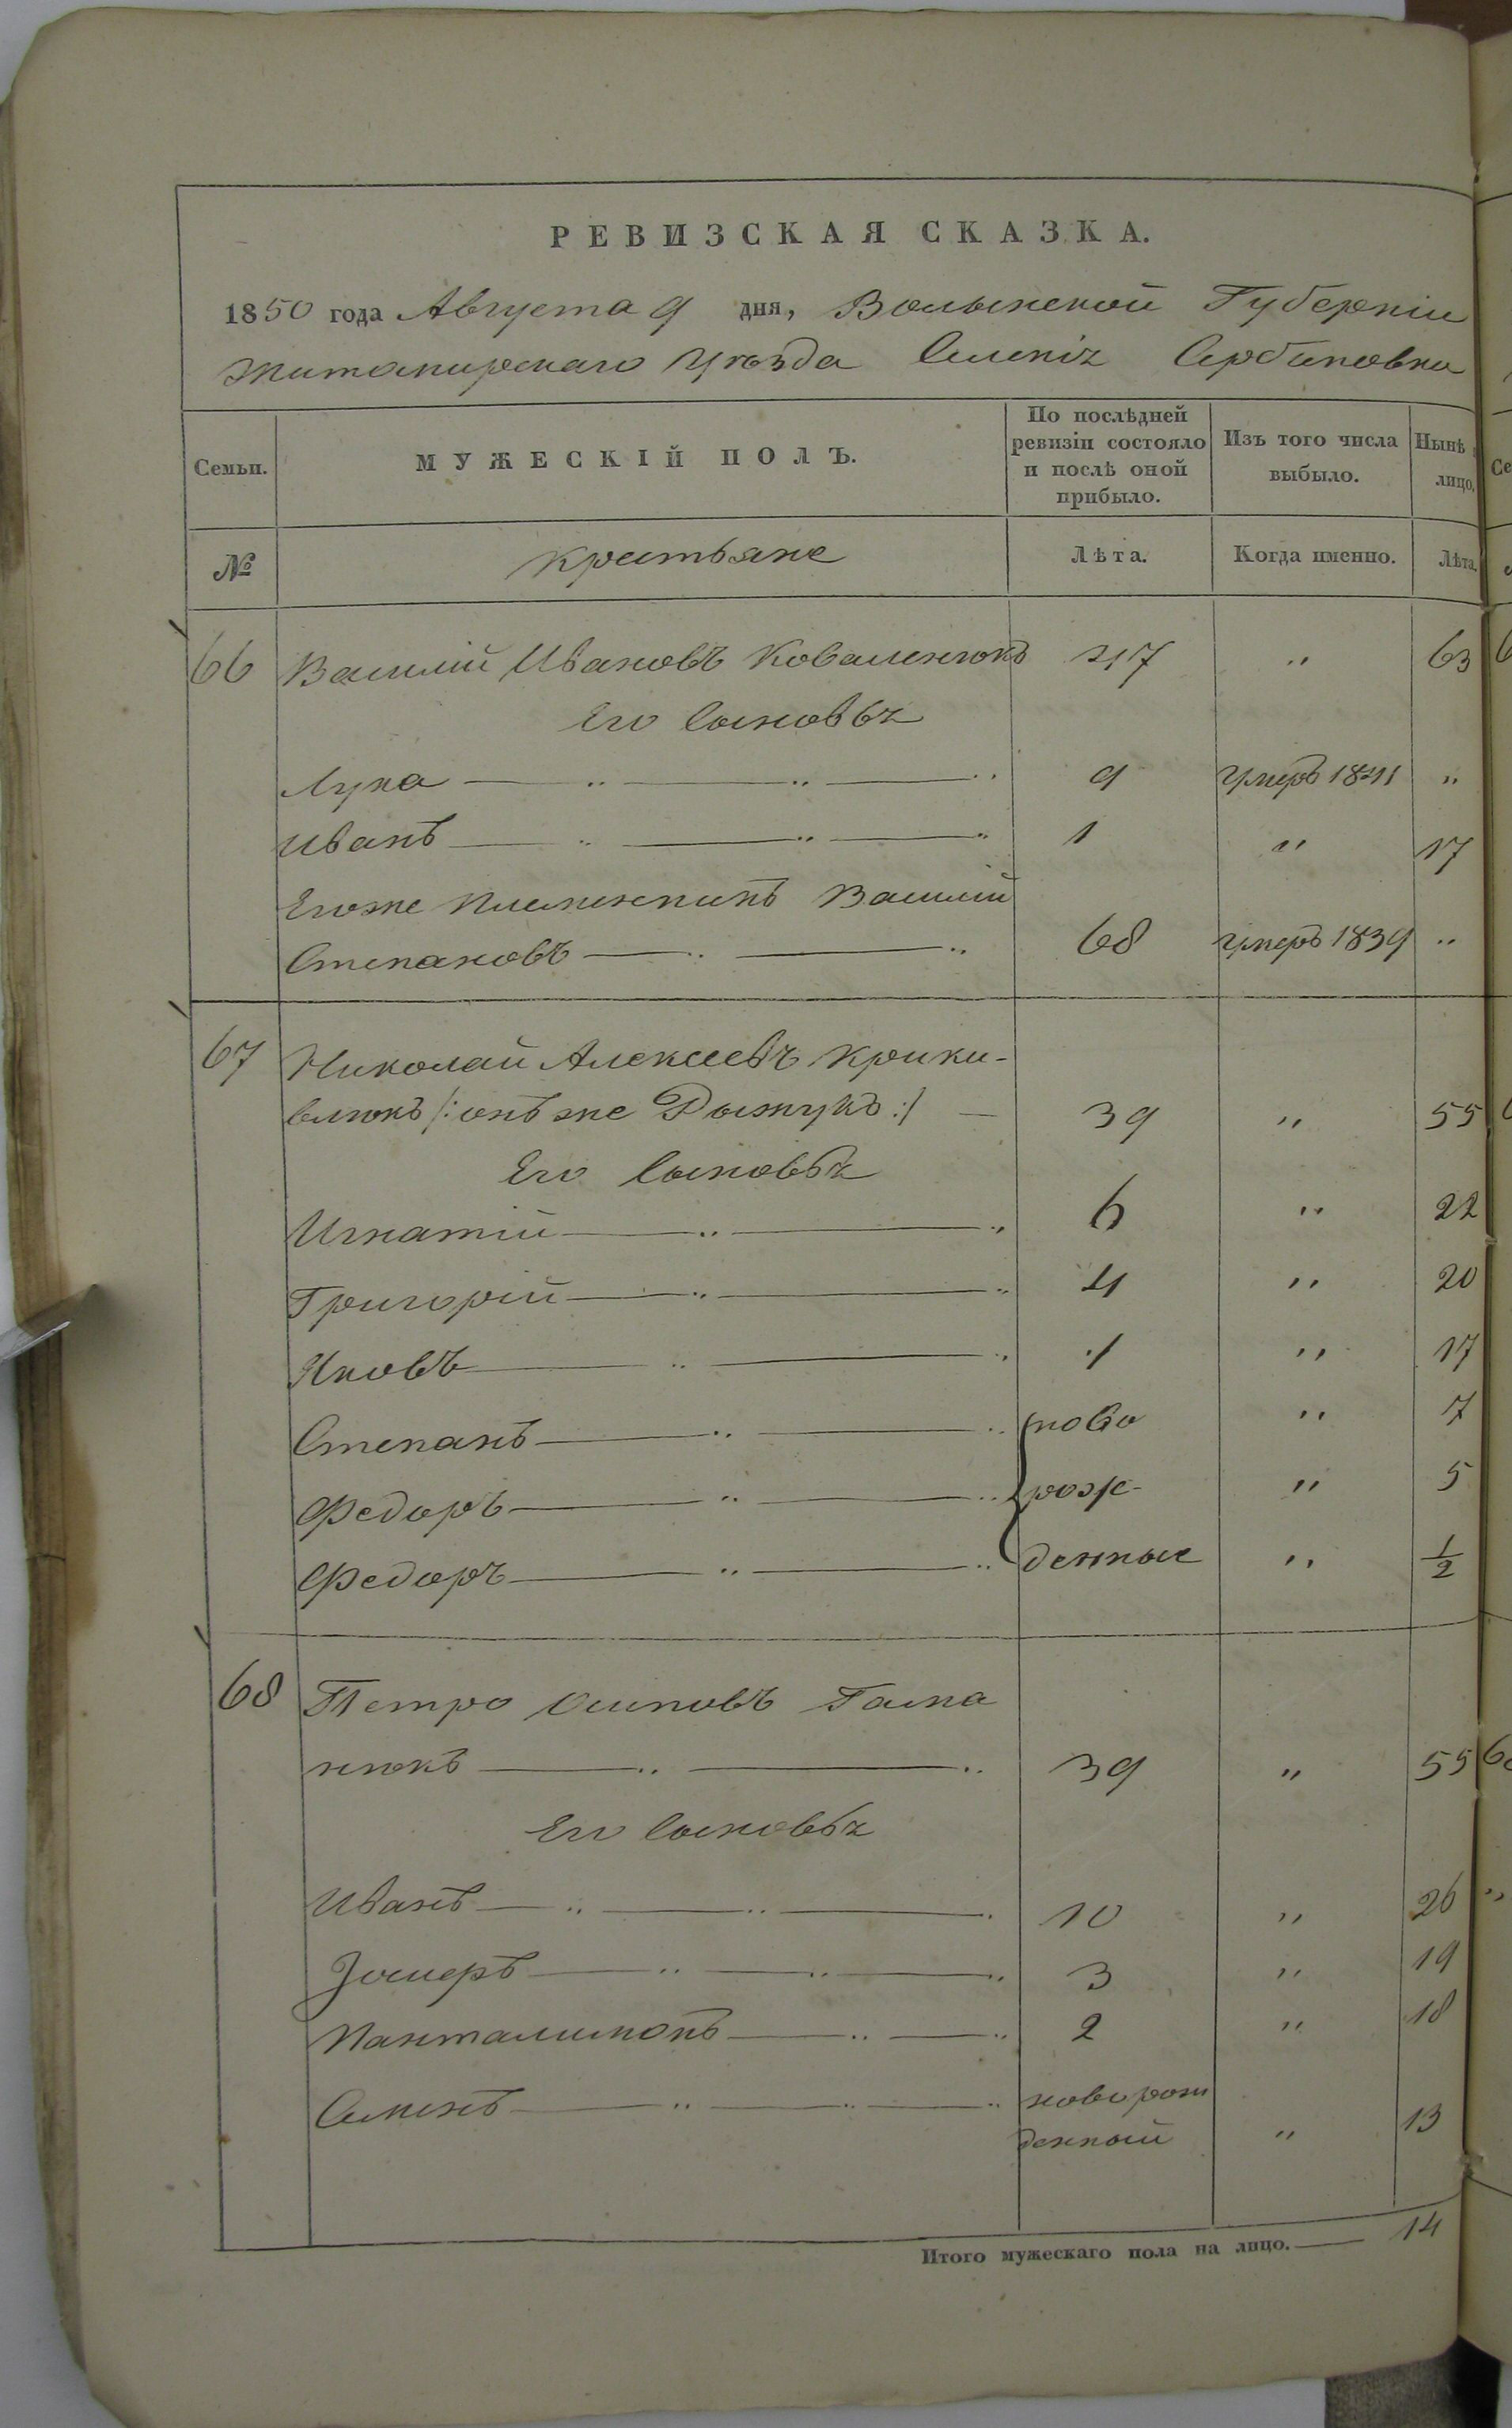 РЕВИЗСКАЯ СКАЗКА.
1850 года Августа 9 дня, Волынской Губерніи
Житомирскаго Уѣзда Селенія Сербиновки
Семьи. МУЖЕСКІЙ ПОЛЪ. По послѣдней ревизіи состояло и послѣ оной прибыло. Изъ того числа выбыло. Нынѣ лицо,
№ Крестьяне Лѣта. Когда именно. Лѣта.
66 Василій Ивановъ Коваленюкъ 47 " 63
Его Сыновья
Лука 9 умеръ 1841 "
Иванъ 1 " 17
Егоже Племенникъ Василій
Степановъ 68 умеръ 1839 "
67 Николай Алексеевъ Крики-
влюкъ /: онъ же Рыжукъ :/ 39 " 55
Его Сыновья
Игнатій 6 " 22
Григорій 4 " 20
Яковъ 1 " 17
Степанъ ново " 7
Федоръ рож- " 5
Федоръ денные " 1/2
68 Петро Осиповъ Гама
нюкъ 39 " 55
Его Сыновья
Иванъ 10 " 26
3 " 19
Панталимонъ 2 " 18
Семенъ новорож
денный " 13
Итого мужескаго пола на лицо. 14